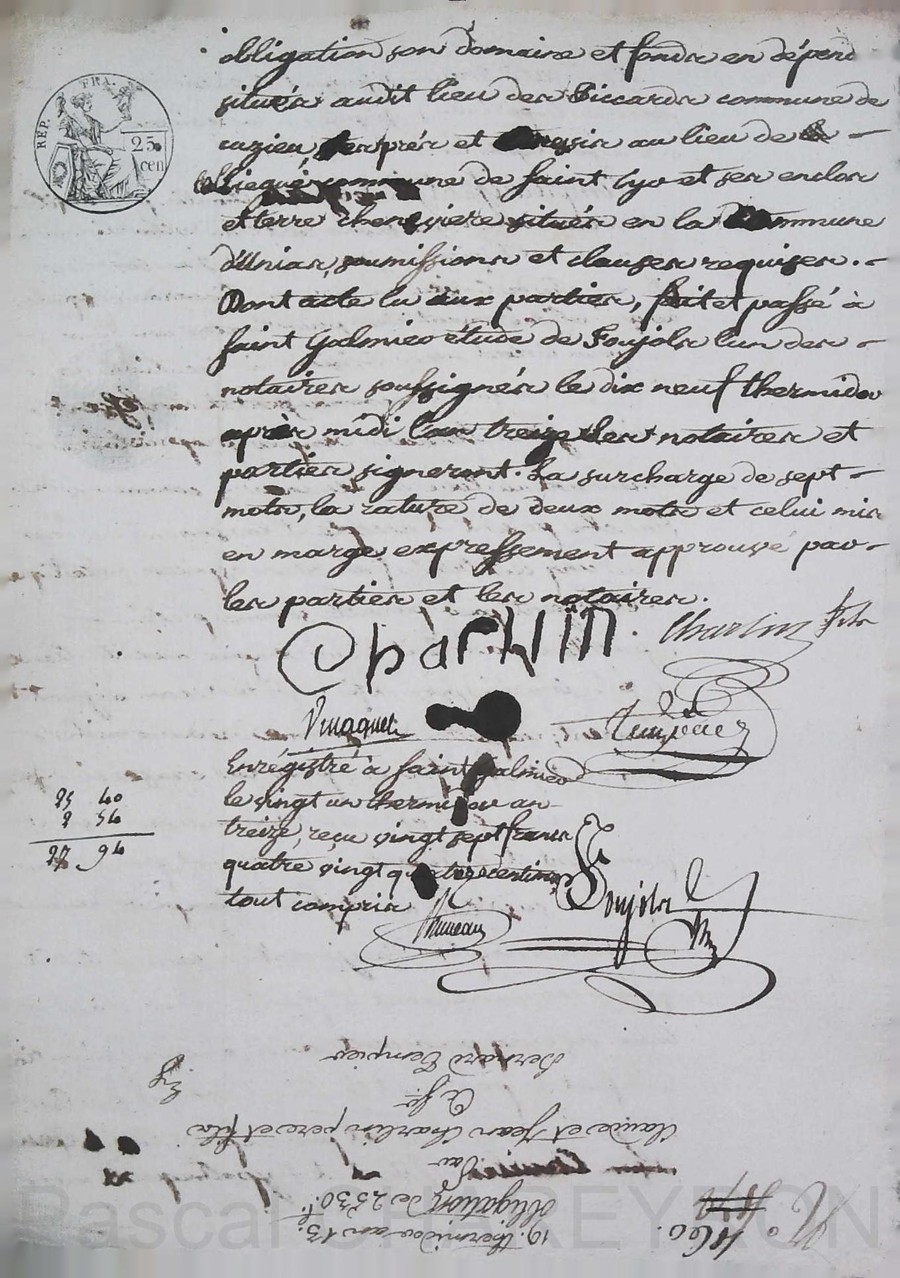 REP. FRA.
25.
cen
obligation son domaine et fonds en dépend
situés audit lieu des Piccards commune de
cuzieu ses prés et au lieu de
commune de saint Cyr et ses enclos
et terre cheneviere situés en la Commune
d'Unias, soumissions et clauses requises. -
Dont acte lu aux parties, fait et passé à
saint Galmier étude de Soujols l'un des -
notaires soussignés le dix neuf thermidor
après midi l'an treize les notaires et
parties signeront. La surcharge de sept -
mots, la rature de deux mots et celui mis
en marge expressement approuvé par -
les parties et les notaires.
Charlin. Charlin fils
Enrégistré à saint Galmier
le vingt un thermidor an
25 40
2 54
27 94
treize, reçu vingt sept francs
quatre vingt quatorze centimes
tout compris
Soujols
19. thermidor an 13.
obligation de 2530 f.
Par
Claude et Jean Charlin pere et fils
A Sr.
Bernard Tempier
N.o 1860.
Pascal CHAREYRON